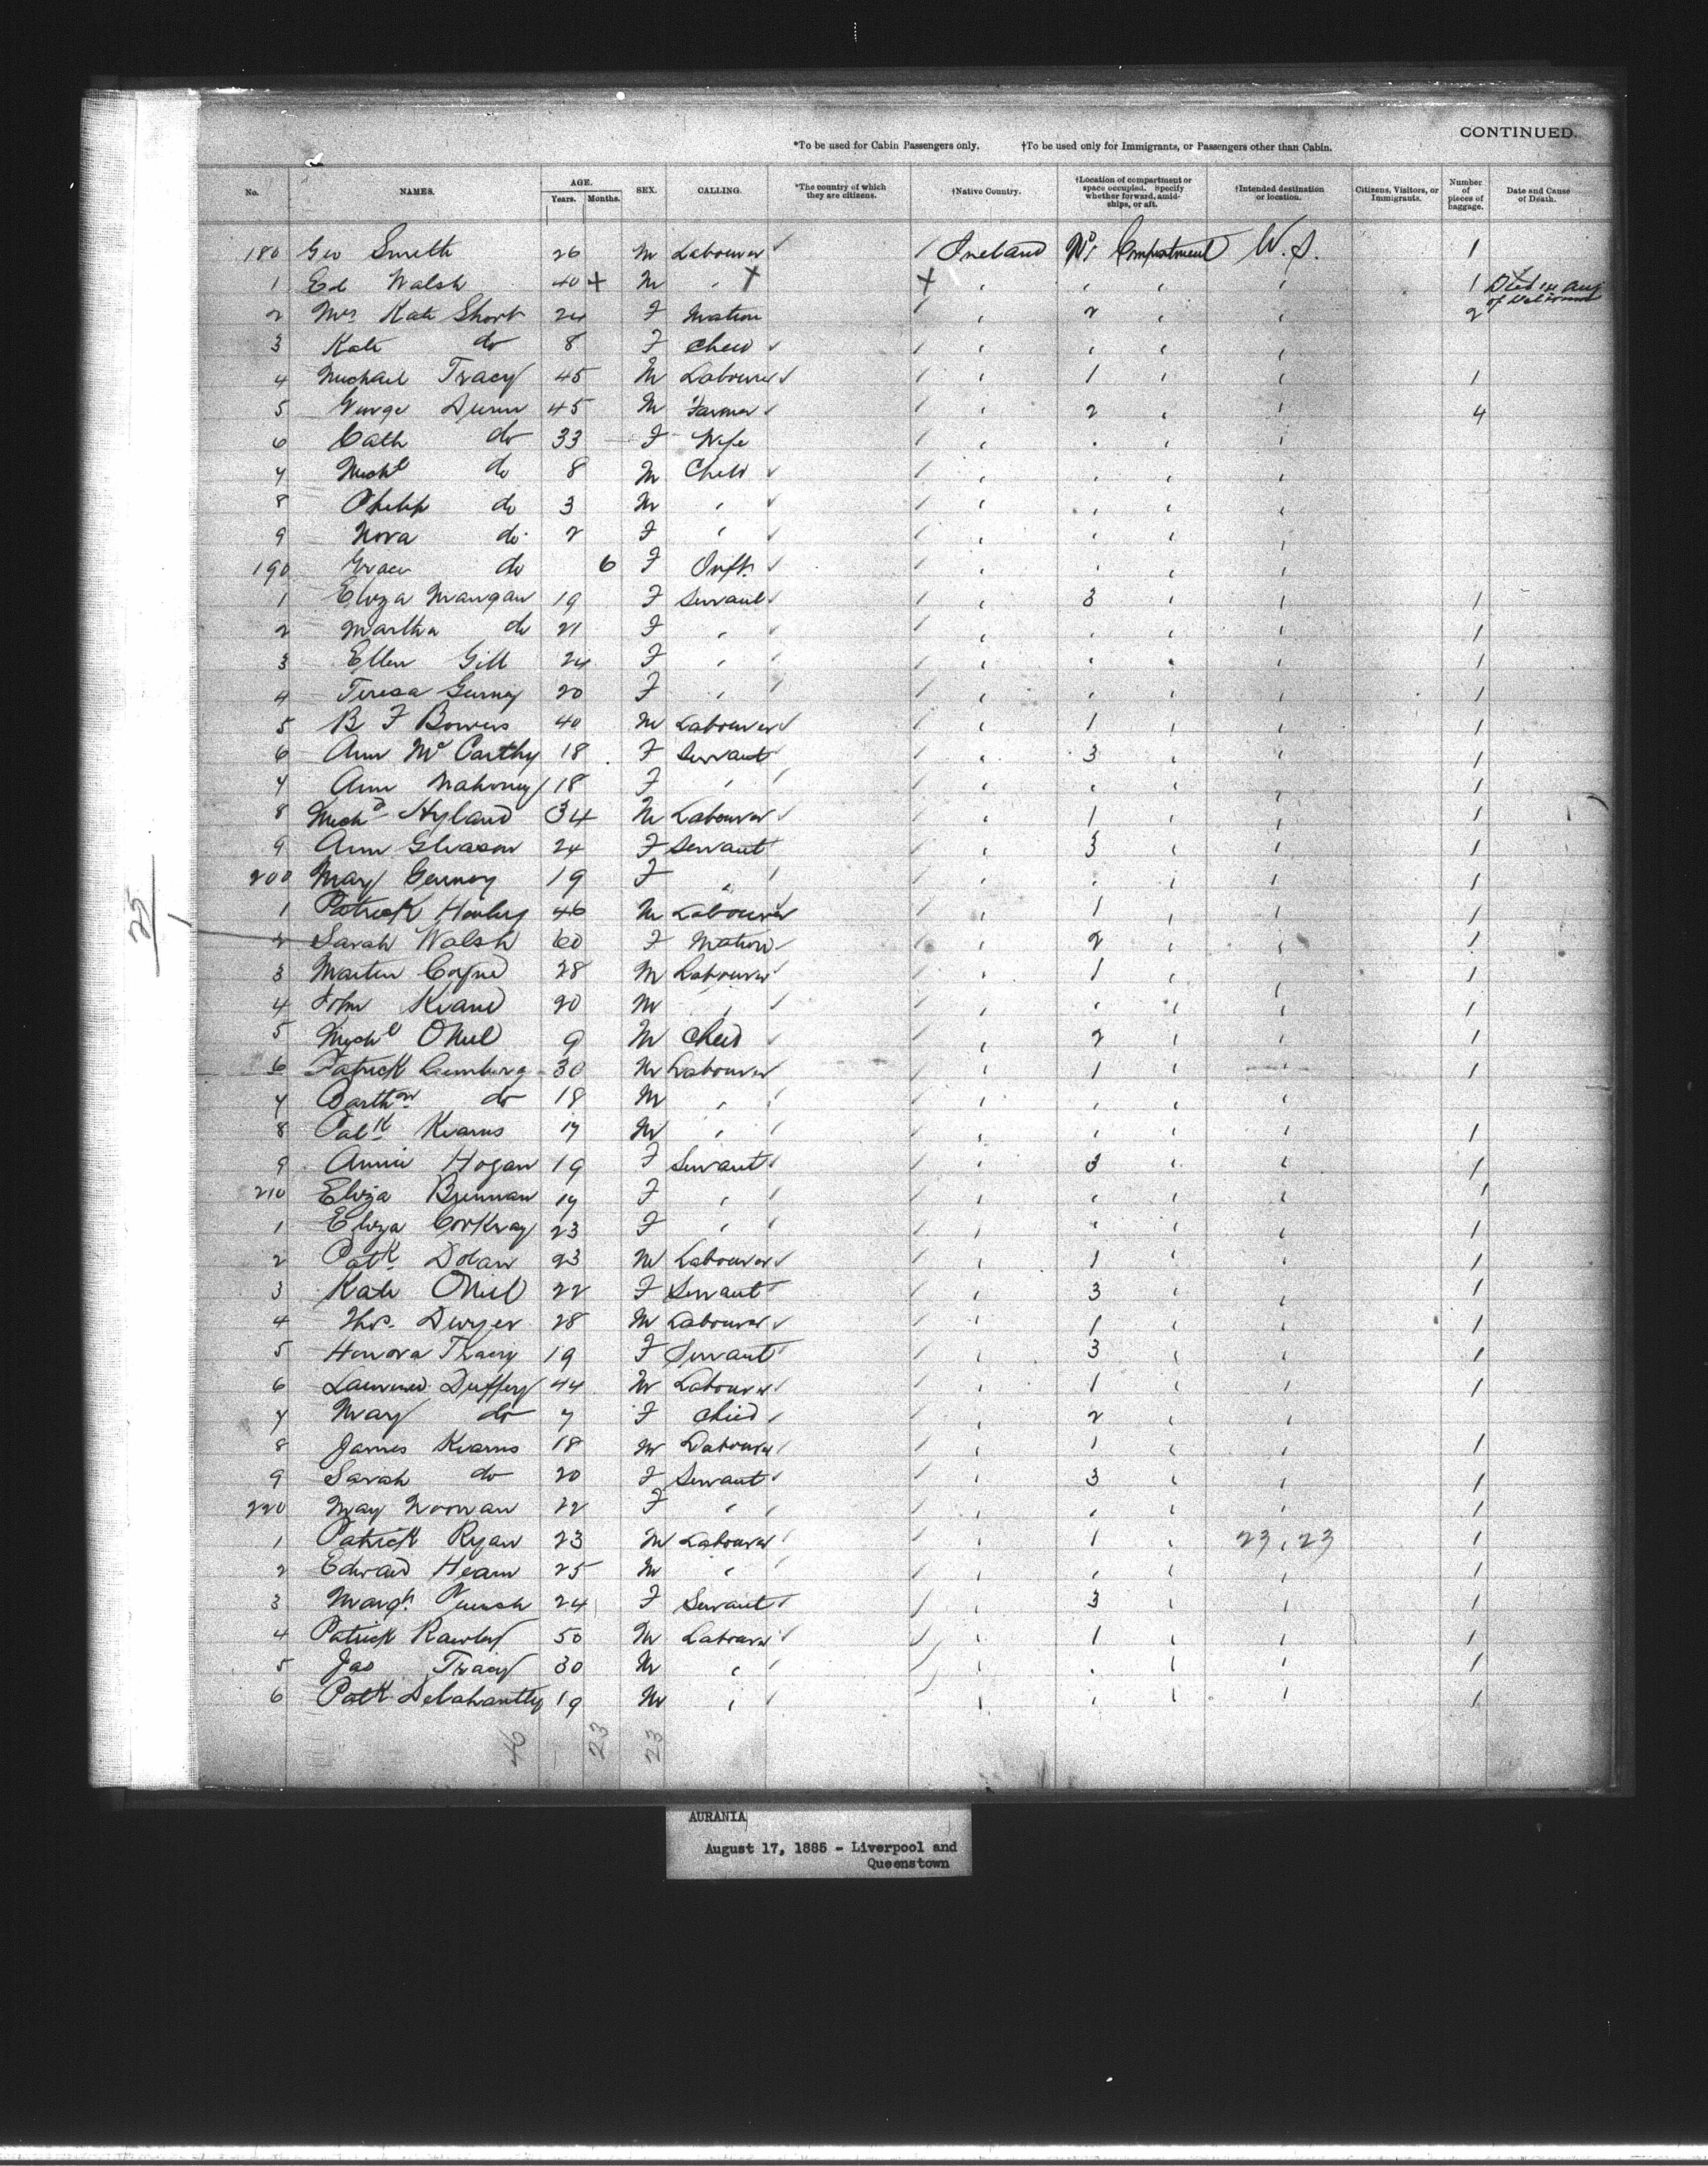 CONTINUED.
*To be used for Cabin Passengers only. †To be used only for Immigrants, or Passengers other than Cabin.
No. NAMES. AGE. Years. Months. SEX. CALLING. *The country of which they are citizens. †Native Country. †Location of compartment or space occupied. Specify whether forward, amidships, or aft. †Intended destination or location. Citizens, Visitors, or Immigrants. Number of pieces of baggage. Date and Cause of Death.
180 Geo Smith 26 M Labourer Ireland No 1 Compartment U.S. 1
1 Ed Walsh 40 M 1 Died Aug
2 Mrs Kate Short 24 F Matron 2 2
3 Kate do 8 F Child
4 Michael Tracy 45 M Labourer 1 1
5 George 45 M Farmer 2 4
6 Cath do 33 F Wife
7 Michl do 8 M Child
8 Philip do 3 M
9 Nora do 2 F
190 Grace do 6 F Inft.
1 Eliza Mangan 19 F Servant 3 1
2 Martha do 21 F 1
3 Ellen Gill 24 F 1
4 Teresa 20 F 1
5 B F Bowers 40 M Labourer 1 1
6 Ann McCarthy 18 F Servant 3 1
7 Ann Mahoney 18 F 1
8 Michl Hyland 34 M Labourer 1 1
9 Ann Gleason 24 F Servant 3 1
200 Mary 19 F 1
1 Patrick 46 M Labourer 1 1
2 Sarah Walsh 60 F Matron 2 1
3 Martin Coyne 28 M Labourer 1 1
4 John Keane 20 M 1
5 Michl ONeil 9 M Child 2 1
6 Patrick 30 M Labourer 1 1
7 Barthw do 18 M
8 Patk Kearns 17 M 1
9 Annie Hogan 19 F Servant 3 1
210 Eliza Brennan 19 F 1
1 Eliza Corkray 23 F 1
2 Patk Dolan 23 M Labourer 1 1
3 Kate ONeil 22 F Servant 3 1
4 Thos. Dwyer 28 M Labourer 1 1
5 Honora Tracy 19 F Servant 3 1
6 Lawrence Duffey 44 M Labourer 1 1
7 Mary do 7 F Child 2
8 James Kearns 18 M Labourer 1 1
9 Sarah do 20 F Servant 3 1
220 Mary Noonan 22 F 1
1 Patrick Ryan 23 M Labourer 1 23 23 1
2 Edward Hearn 25 M 1
3 Margt 24 F Servant 3 1
4 Patrick Rawley 50 M Labourer 1 1
5 Jas Tracy 30 M 1
6 Patk Delahantty 19 M 1
46 23 23
25
AURANIA
August 17, 1885 - Liverpool and
Queenstown